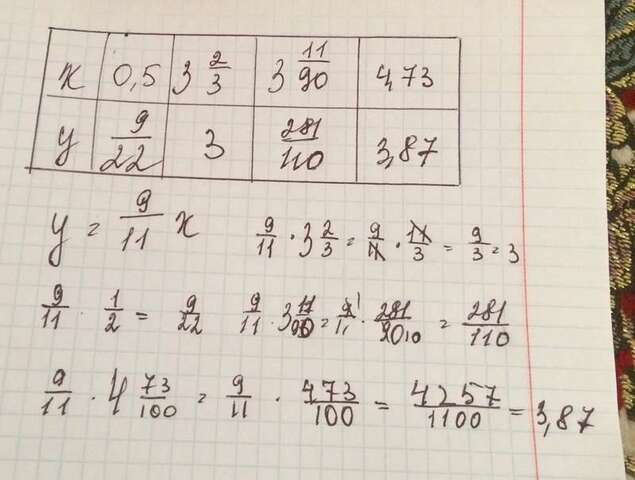 x 0,5 3 2/3 3 11/90 4,73
y 9/22 3 281/110 3,87
y = 9/11 x 9/11 · 3 2/3 = 9/11 · 11/3 = 9/3 = 3
9/11 · 1/2 = 9/22 9/11 · 3 11/90 = 9/11 · 281/90 = 281/110
9/11 · 4 73/100 = 9/11 · 473/100 = 4257/1100 = 3,87